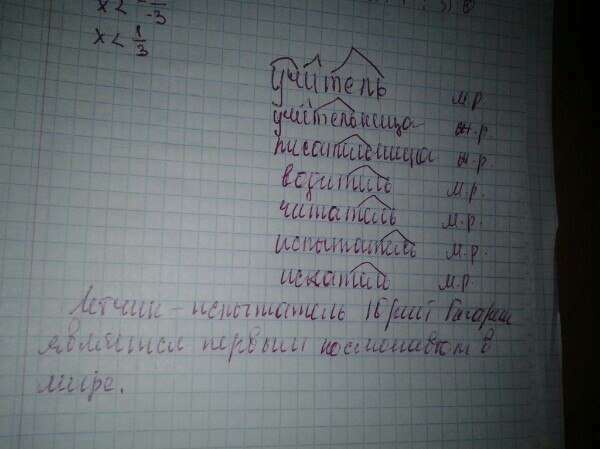 x < -3
x < 1/3
учитель м.р.
учительница ж.р.
писательница ж.р.
водитель м.р.
читатель м.р.
испытатель м.р.
искатель м.р.
Летчик - испытатель Юрий Гагарин
является первым космонавтом в
мире.